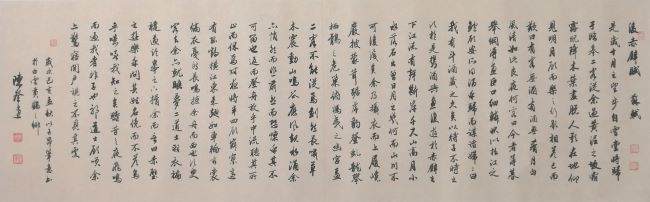 後赤壁賦 蘇軾
是歲十月之望步自雪堂將歸
于臨皋二客從余過黃泥之坂霜
露既降木葉盡脫人影在地仰
見明月顧而樂之行歌相答已而
歎曰有客無酒有酒無肴月白
風清如此良夜何客曰今者薄暮
舉網得魚巨口細鱗狀似松江之
鱸顧安所得酒乎歸而謀諸婦婦曰
我有斗酒藏之久矣以待子不時之
須於是攜酒與魚復遊於赤壁之
下江流有聲斷岸千尺山高月小
水落石出曾日月之幾何而江山不
可復識矣余乃攝衣而上履巉
巖披蒙茸踞虎豹登虬龍攀
栖鶻之危巢俯馮夷之幽宮蓋
二客不能從焉劃然長嘯草
木震動山鳴谷應風起水涌余
亦悄然而悲肅然而恐凜乎其不
可留也返而登舟放乎中流聽其所
止而休焉時夜將半四顧寂寥適
有孤鶴橫江東來翅如車輪玄裳
縞衣戛然長鳴掠余舟而西也須臾
客去余亦就睡夢一道士羽衣蹁
躚過臨皋之下揖余而言曰赤壁
之遊樂乎問其姓名俛而不答嗚
呼噫嘻我知之矣疇昔之夜飛鳴
而過我者非子也邪道士顧笑余
亦驚寤開戶視之不見其處
歲次己亥孟秋
於白雲黃鶴之鄉
陳